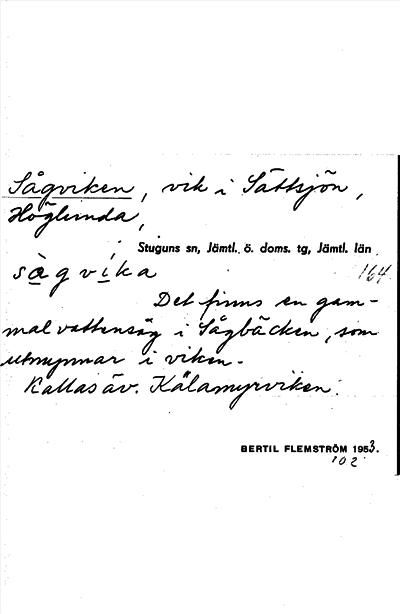 Sågviken, vik i Sättsjön,
Höglunda,
Stuguns sn, Jämtl. ö. doms. tg, Jämtl. län
sågvika 164
Det finns en gam-
mal vattensåg i Sågbäcken, som
utmynnar i viken.
Kallas äv. Kälamyrviken.
BERTIL FLEMSTRÖM 1953.
102